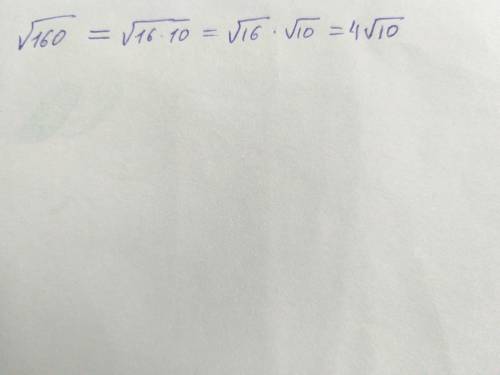 √160 = √16·10 = √16 · √10 = 4√10